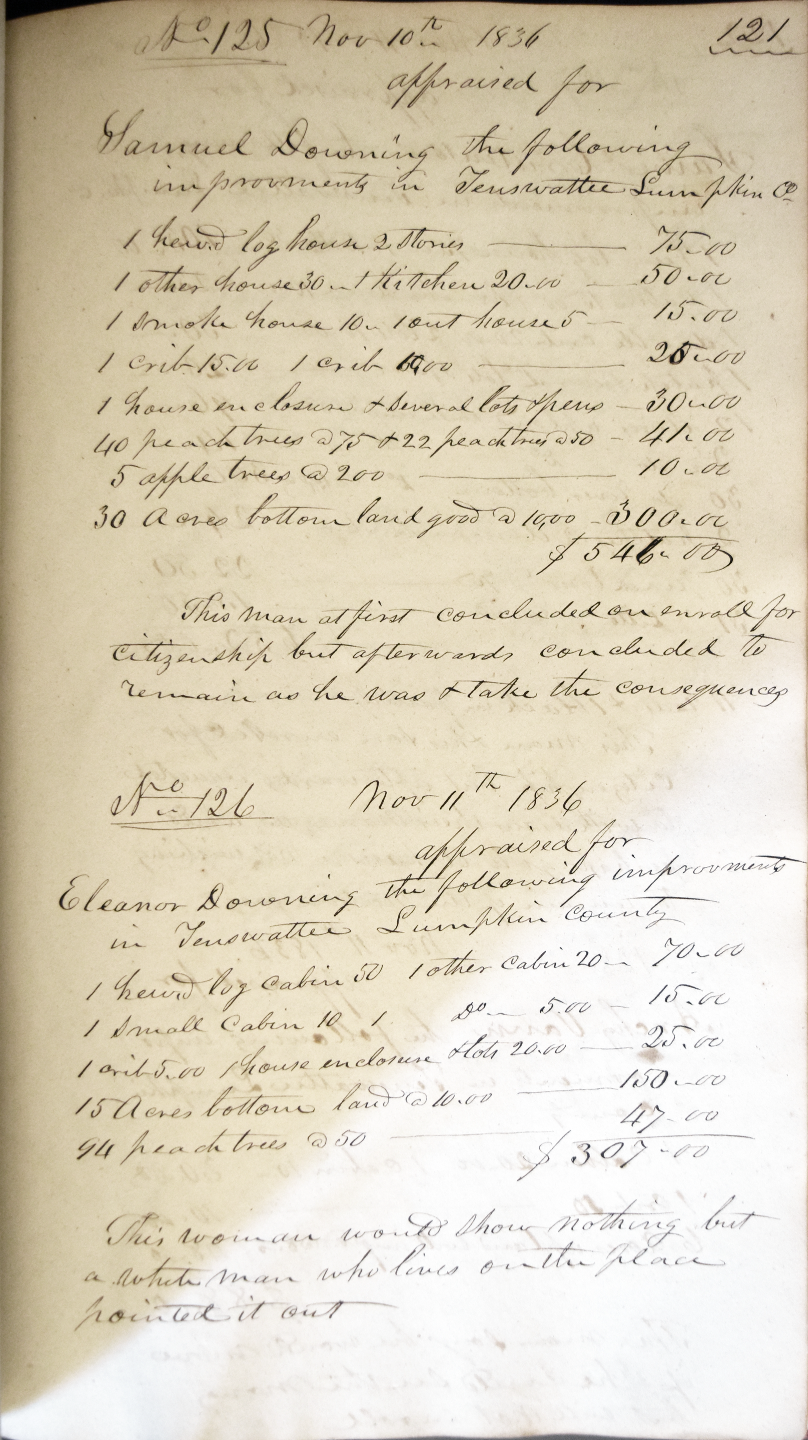 No 125 Nov 10th 1836 121
appraised for
Samuel Downing the following
improvments in Tenswattee Lumpkin Co
1 hew'd log house 2 Stories — 75.00
1 other house 30.. 1 Kitchen 20.00 — 50.00
1 smoke house 10.. 1 out house 5 — 15.00
1 crib 15.00 1 crib 10.00 — 25.00
1 house enclosure & several lots & pens — 30.00
40 peach trees @ 75 & 22 peach trees @ 50 — 41.00
5 apple trees @ 200 — 10.00
30 Acres bottom land good @ 10,00 — 300.00
$ 546.00
This man at first concluded on enroll for
citizenship but afterwards concluded to
remain as he was & take the consequences
No 126 Nov 11th 1836
appraised for
Eleanor Downing the following improvments
in Tenswattee Lumpkin County
1 hew'd log cabin 50 1 other cabin 20.. 70.00
1 small Cabin 10 1 Do — 5.00 — 15.00
1 crib 5.00 1 house enclosure & lots 20.00 — 25.00
15 Acres bottom land @ 10.00 — 150.00
94 peach trees @ 50 — 47.00
$ 307.00
This woman would show nothing but
a white man who lives on the place
pointed it out